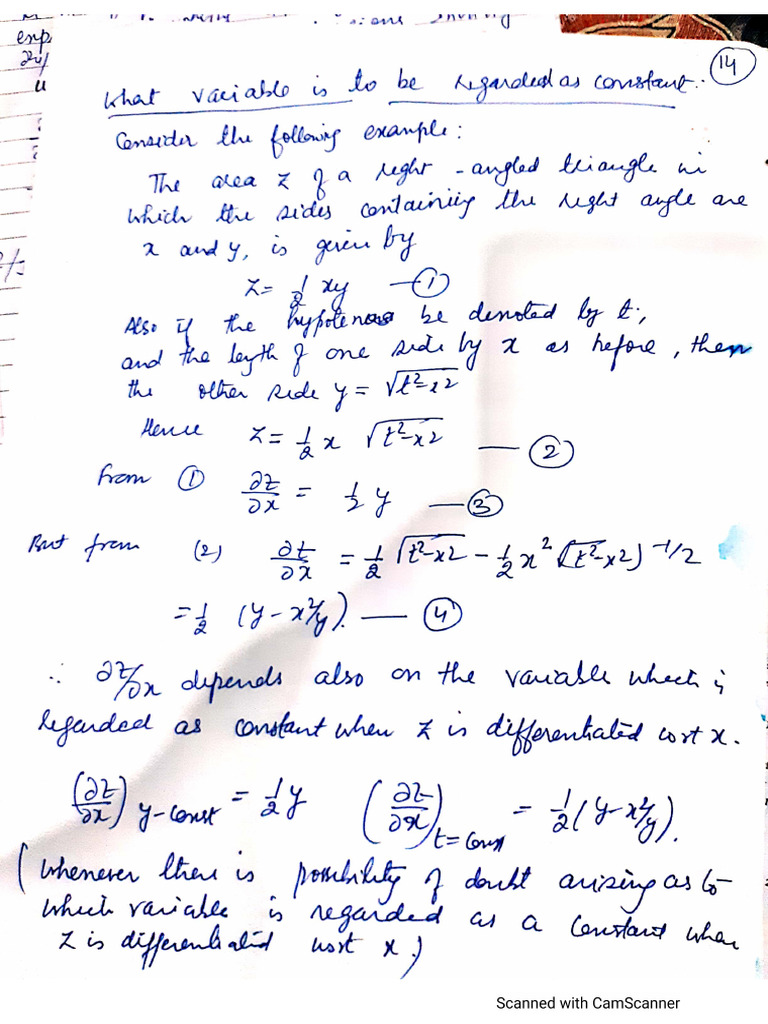 exp.
14
What variable is to be regarded as constant.
Consider the following example:
The area z of a right-angled triangle in
which the sides containing the right angle are
x and y, is given by
z = 1/2 xy — ①
Also if the hypotenus be denoted by t,
and the length of one side by x as before, then
the other side y = √(t²-x²)
Hence z = 1/2 x √(t²-x²) — ②
From ① ∂z/∂x = 1/2 y — ③
But from (2) ∂z/∂x = 1/2 √(t²-x²) - 1/2 x² (t²-x²)^-1/2
= 1/2 (y - x²/y). — ④
∴ ∂z/∂x depends also on the variable which is
regarded as constant when z is differentiated wrt x.
(∂z/∂x) y-const = 1/2 y (∂z/∂x) t = const = 1/2 (y - x²/y).
(Whenever there is possibility of doubt arizing as to
which variable is regarded as a constant when
z is differentiated wrt x.)
Scanned with CamScanner